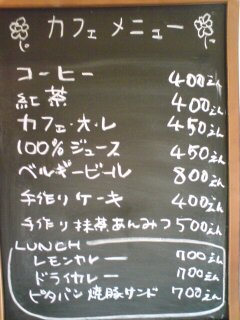 カフェ メニュー
コーヒー 400えん
紅茶 400えん
カフェ・オ・レ 450えん
100%ジュース 450えん
ベルギービール 800えん
手作りケーキ 400えん
手作り抹茶あんみつ 500えん
LUNCH
レモンカレー 700えん
ドライカレー 700えん
ピタパン焼豚サンド 700えん